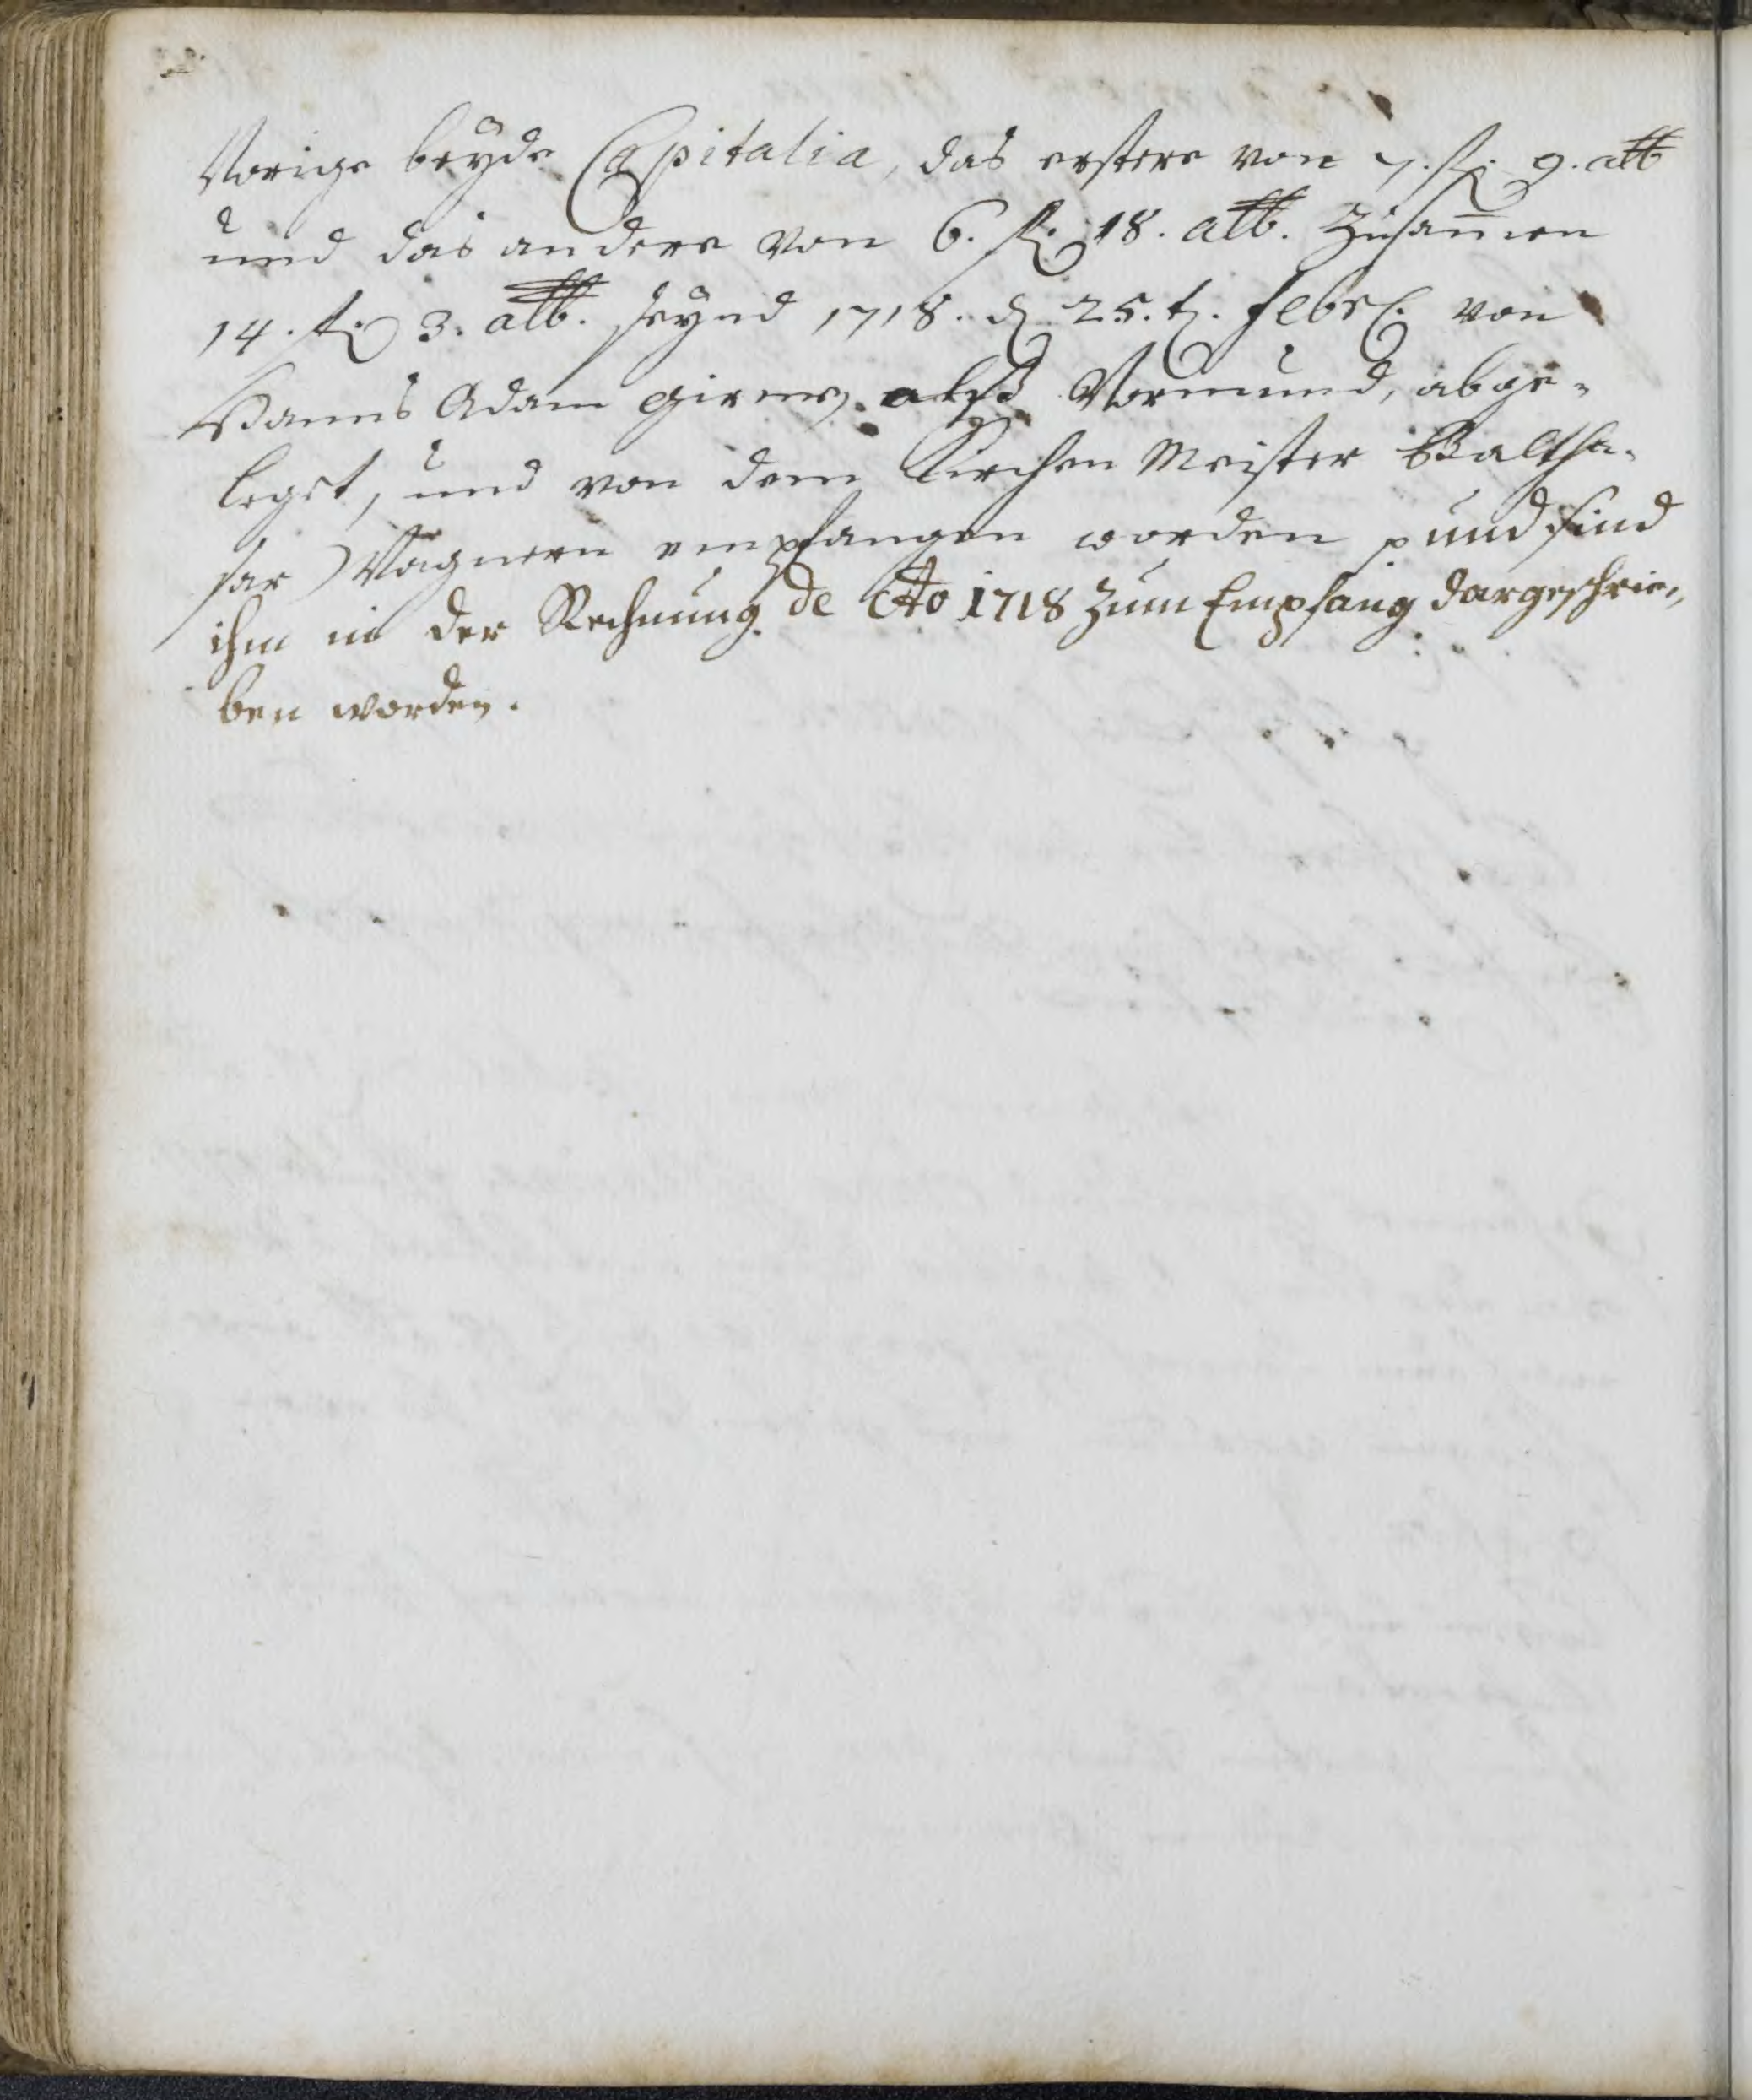 Vorige beyde Capitalia, das erstere von 7. fl. 9. alb
und das andere von 6. fl. 18. alb. Zusam̅en
14. fl. 3. alb. seynd 1718. d. 25.t. Febr. von
Hanns Adam alß Vormund, abge-
leget, und von dem Kirchen Meister Baltha-
sar Wagnern empfangen worden p und sind
ihm in der Rechnung de Ao 1718 zum Empfang dargeschrie,,
ben worden.